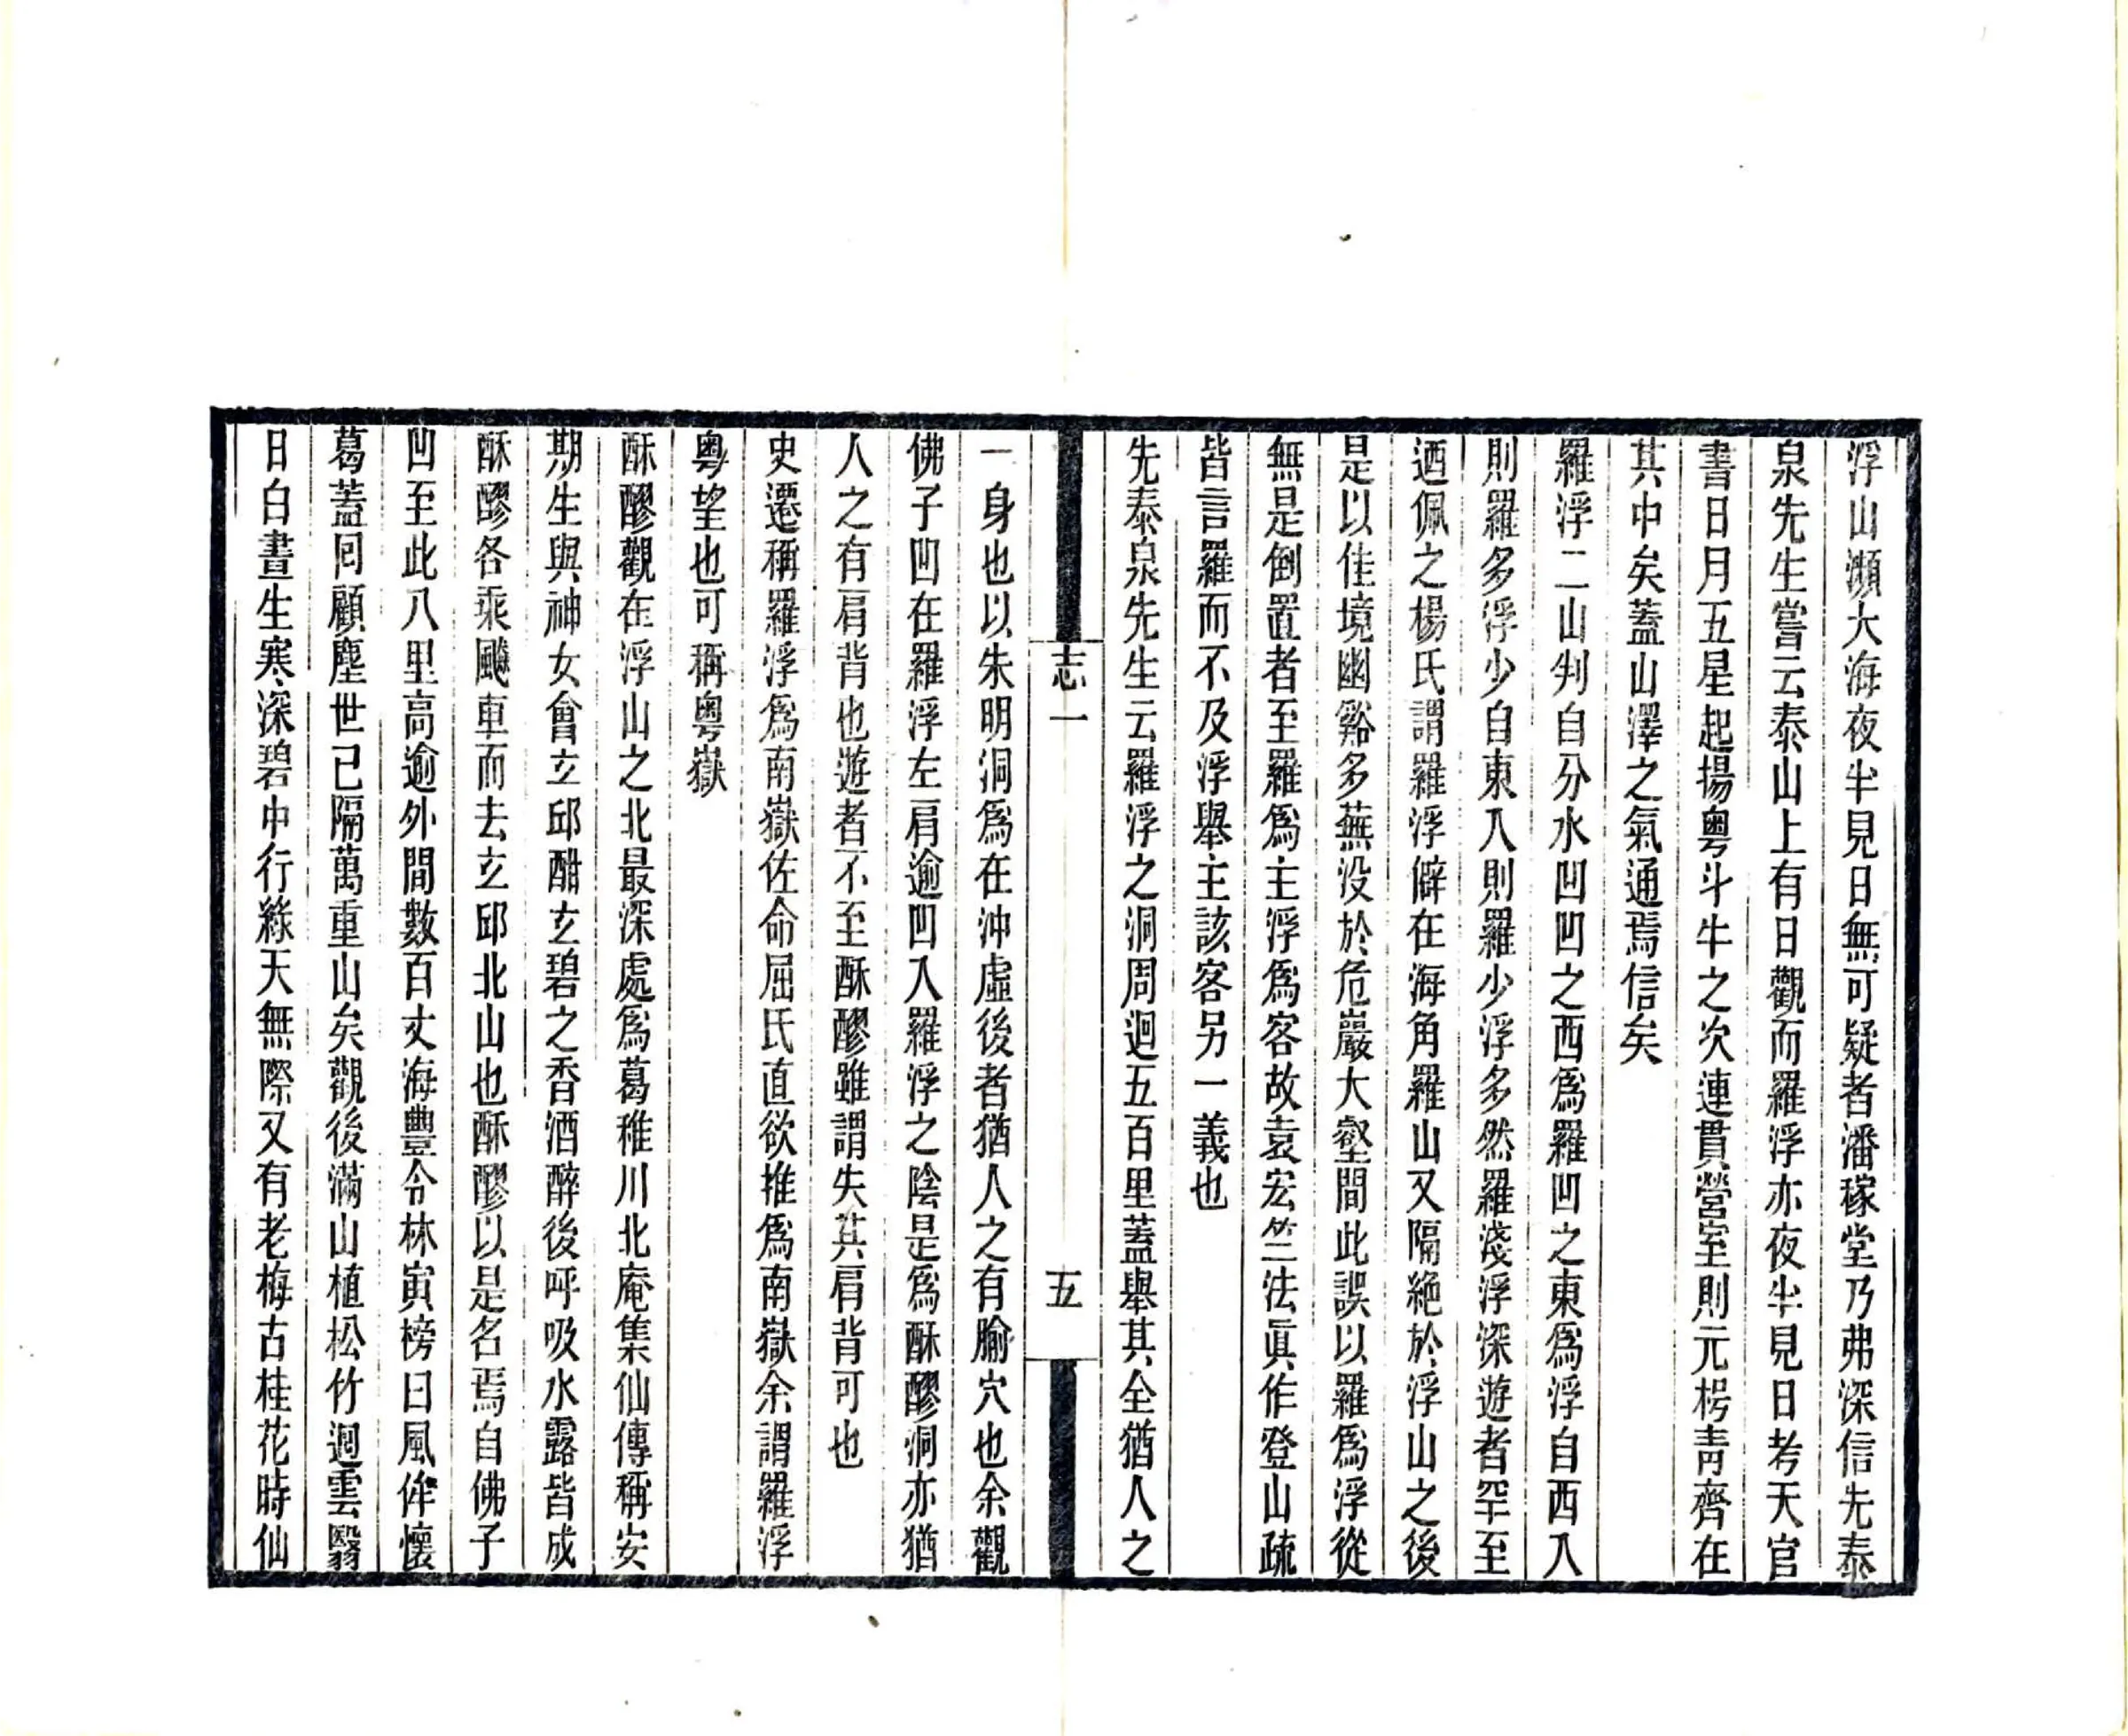 浮山瀕大海夜半見日無可疑者潘稼堂乃弗深信先泰
泉先生嘗云泰山上有日觀而羅浮亦夜半見日考天官
書日月五星起揚粤斗牛之次連貫營室則元枵靑齊在
其中矣蓋山澤之氣通焉信矣
羅浮二山判自分水凹凹之西爲羅凹之東爲浮自西入
則羅多浮少自東入則羅少浮多然羅淺浮深遊者罕至
迺佩之楊氏謂羅浮僻在海角羅山又隔絶於浮山之後
是以佳境幽谿多蕪没於危巖大壑間此誤以羅爲浮從
無是倒置者至羅爲主浮爲客故袁宏竺法眞作登山疏
皆言羅而不及浮舉主該客另一義也
先泰泉先生云羅浮之洞周迴五百里蓋舉其全猶人之
志一
五
一身也以朱明洞爲在沖虛後者猶人之有腧穴也余觀
佛子凹在羅浮左肩逾凹入羅浮之陰是爲酥醪洞亦猶
人之有肩背也遊者不至酥醪雖謂失其肩背可也
史遷稱羅浮爲南嶽佐命屈氏直欲推爲南嶽余謂羅浮
粤望也可稱粤嶽
酥醪觀在浮山之北最深處爲葛稚川北庵集仙傳稱安
期生與神女會玄邱酣玄碧之香酒醉後呼吸水露皆成
酥醪各乘飈車而去玄邱北山也酥醪以是名焉自佛子
凹至此八里高逾外間數百丈海豐令林寅榜曰風侔懷
葛蓋囘顧塵世已隔萬重山矣觀後滿山植松竹迴雲翳
日白晝生寒深碧中行綠天無際又有老梅古桂花時仙